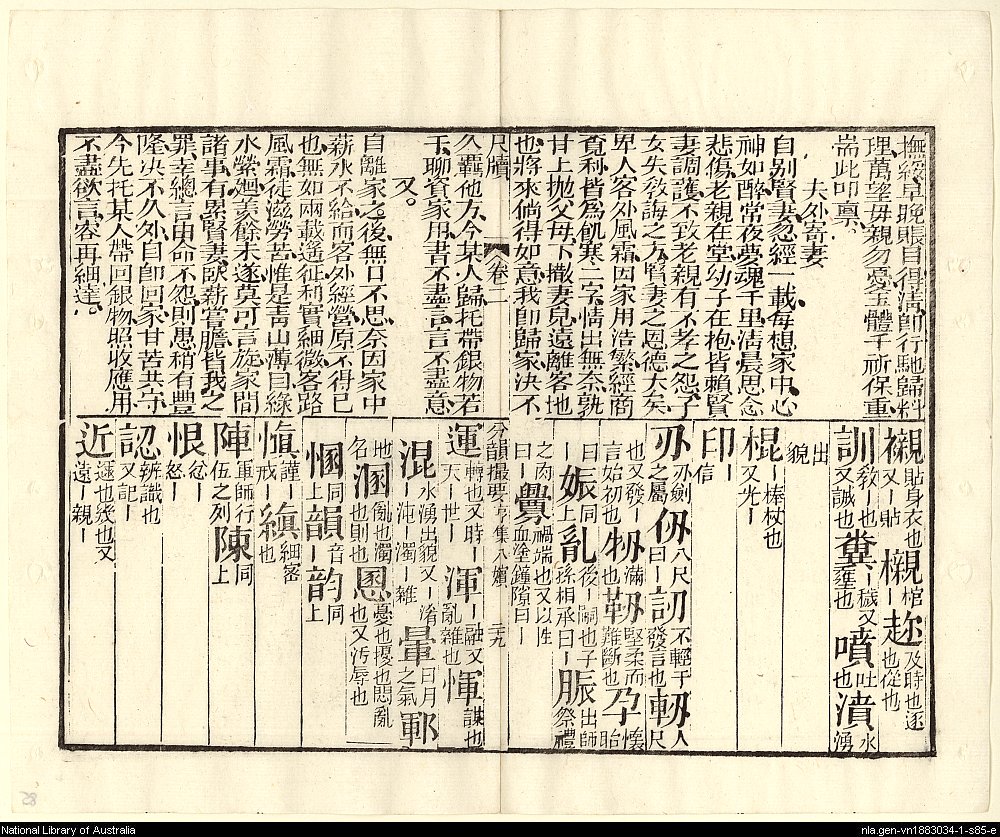 撫綏早晚賬目得淸卽行馳歸料
理萬望毋親勿憂玉體千祈保重
耑此叩禀
夫外寄妻
自别賢妻忽經一載每想家中心
神如醉常夜夢魂千里淸晨思念
悲傷老親在堂幼子在抱皆賴賢
妻調護不致老親有不孝之怨子
女失敎誨之方賢妻之恩德大矣
卑人客外風霜因家用浩繁經商
覔利皆爲飢寒二字情出無奈孰
甘上抛父母下撇妻兒遠離客地
也將來倘得如意我卽歸家决不
尺牘 卷二
久羈他方今某人歸托帶銀物若
干聊資家用書不盡言言不盡意
又。
自離家之後無日不思奈因家中
薪水不給而客外經營原不得已
也無如兩載遙征利實細微客路
風霜徒滋勞苦惟是靑山薄曰綠
水縈廻羙餘未遂莫可言旋家間
諸事有累賢妻卧薪嘗膽皆我之
罪幸總言由命不怨則愚稍有豐
隆决不久外自卽回家甘苦共守
今先托某人帶回銀物照收應用
不盡欲言容再細達。
襯貼身衣也又丨貼櫬棺丨趂及時也逐也從也
訓敎丨也又誡也糞丨穢又壅也噴吐也濆水湧
出貌
棍丨棒杖也又光丨
印信丨
刅刅劍之屬仞八尺曰丨訒不輕于發言也軔人尺
也又發丨言始初也牣丨滿也靭堅柔而難斷也孕懷胎
丨娠上同亂後丨嗣也子孫相承曰丨脤出師祭禮
之肉曰丨釁禍端也又以牲血塗鐘隙曰丨
分韻撮要亨集八嬪 三九
運轉也又時丨天丨世丨渾丨融又亂雜也惲謀也
混水湧出貌又丨淆丨沌丨濁丨雜暈日月之氣鄆
地名溷亂也濁也則也慁憂也擾也悶亂也又汚辱也
悃同上韻音丨韵同上
愼謹丨戒丨縝細密也
陣軍師行伍之列陳同上
恨忿丨怒丨
認辨識也又記丨
近邇也幾也又遠丨丨親
28
National Library of Australia
nla.gen-vn1883034-1-s85-e